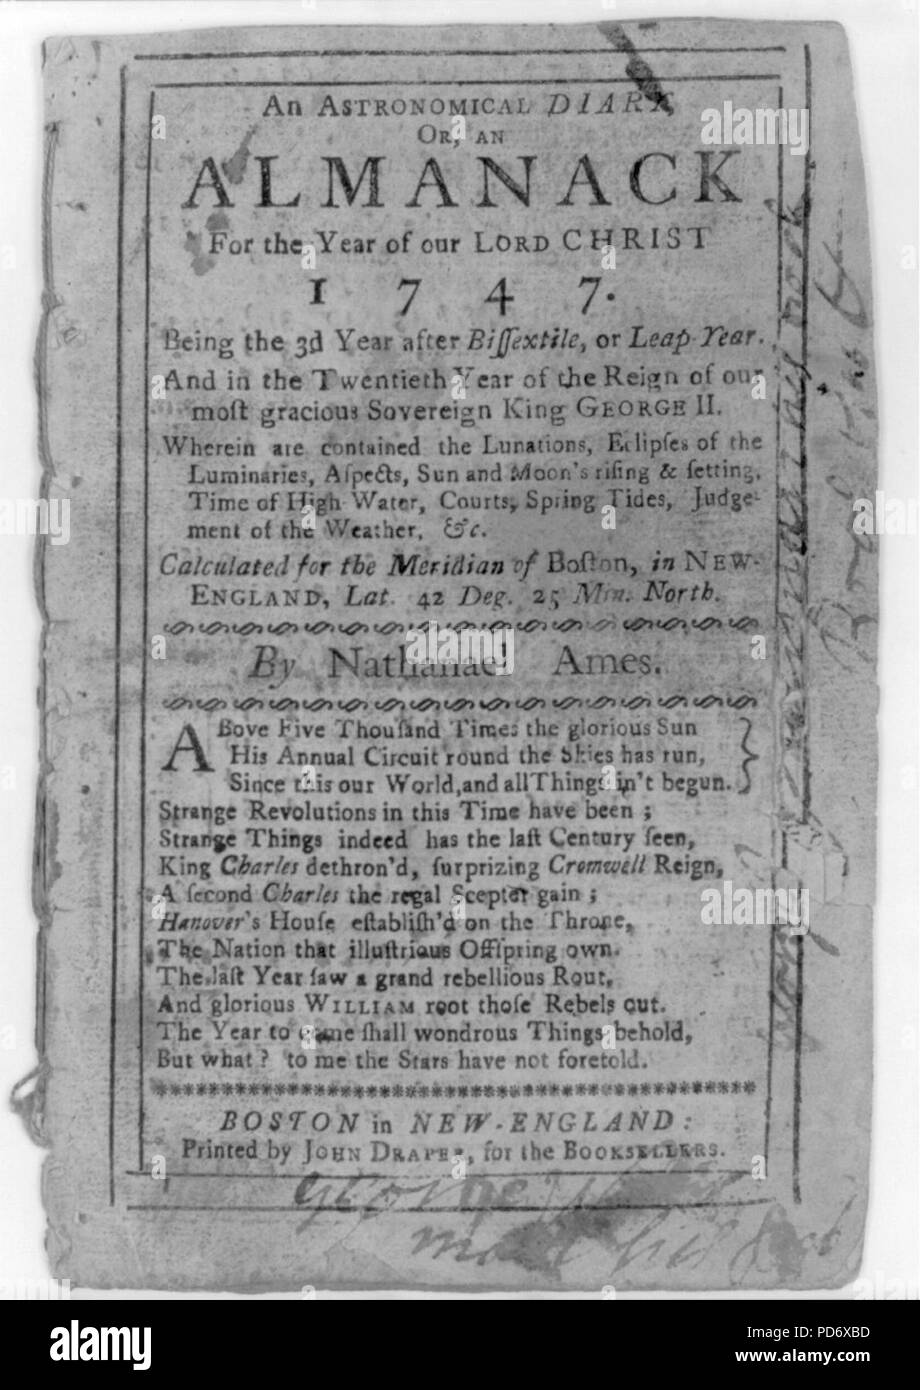 An ASTRONOMICAL DIARY,
OR, AN
ALMANACK
For the Year of our LORD CHRIST
1747.
Being the 3d Year after Biſſextile, or Leap-Year.
And in the Twentieth Year of the Reign of our
moſt gracious Sovereign King GEORGE II.
Wherein are contained the Lunations, Eclipſes of the
Luminaries, Aſpects, Sun and Moon's riſing & ſetting,
Time of High-Water, Courts, Spring Tides, Judge-
ment of the Weather, &c.
Calculated for the Meridian of Boſton, in NEW-
ENGLAND, Lat. 42 Deg. 25 Min. North.
By Nathanael Ames.
ABove Five Thouſand Times the glorious Sun
His Annual Circuit round the Skies has run,
Since this our World, and all Things in't begun.
Strange Revolutions in this Time have been;
Strange Things indeed has the laſt Century ſeen,
King Charles dethron'd, ſurprizing Cromwell Reign,
A ſecond Charles the regal Scepter gain;
Hanover's Houſe eſtabliſh'd on the Throne,
The Nation that illuſtrious Offſpring own.
The laſt Year ſaw a grand rebellious Rout,
And glorious WILLIAM root thoſe Rebels out.
The Year to come ſhall wondrous Things behold,
But what? to me the Stars have not foretold.
BOSTON in NEW-ENGLAND:
Printed by JOHN DRAPER, for the BOOKSELLERS.
George
his
his
book
alamy
alamy
Image ID: PD6XBD
www.alamy.com